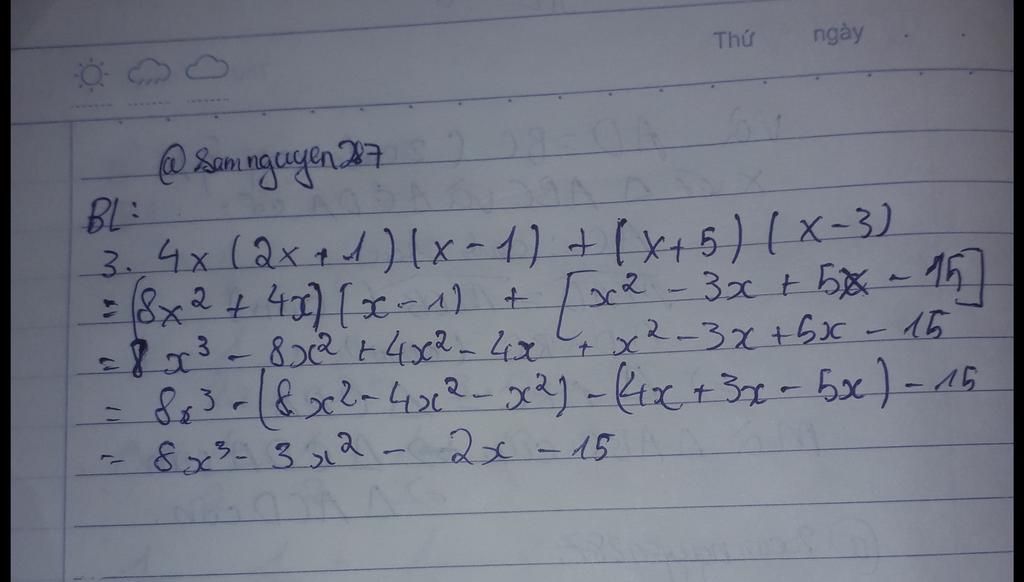 Thứ ngày . .
@samnguyen287
BL:
3. 4x(2x+1)(x-1) + (x+5)(x-3)
= (8x² + 4x)(x-1) + [x² - 3x + 5x - 15]
= 8x³ - 8x² + 4x² - 4x + x² - 3x + 5x - 15
= 8x³ - (8x² - 4x² - x²) - (4x + 3x - 5x) - 15
= 8x³ - 3x² - 2x - 15